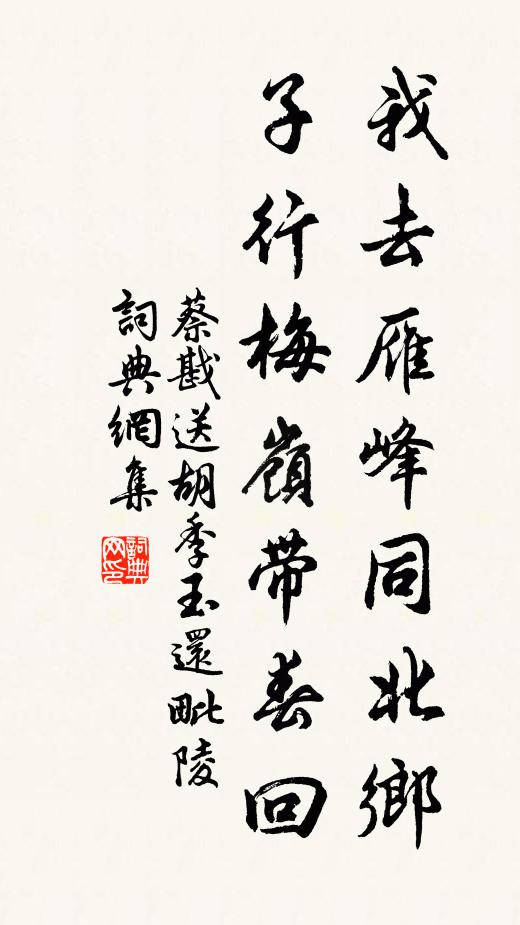 我去雁峰同北鄉
子行梅嶺帶春回
蔡戡送胡季玉還毗陵
詞典網集
詞典網印